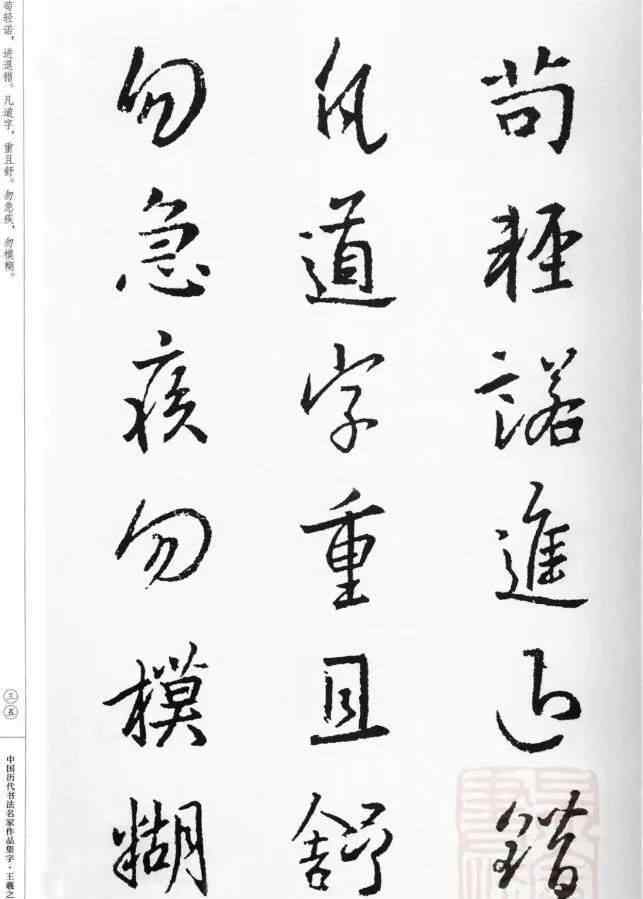 苟輕諾進退錯
凡道字重且舒
勿急疾勿模糊
苟轻诺，进退错。凡道字，重且舒。勿急疾，勿模糊。
三五
中国历代书法名家作品集字·王羲之